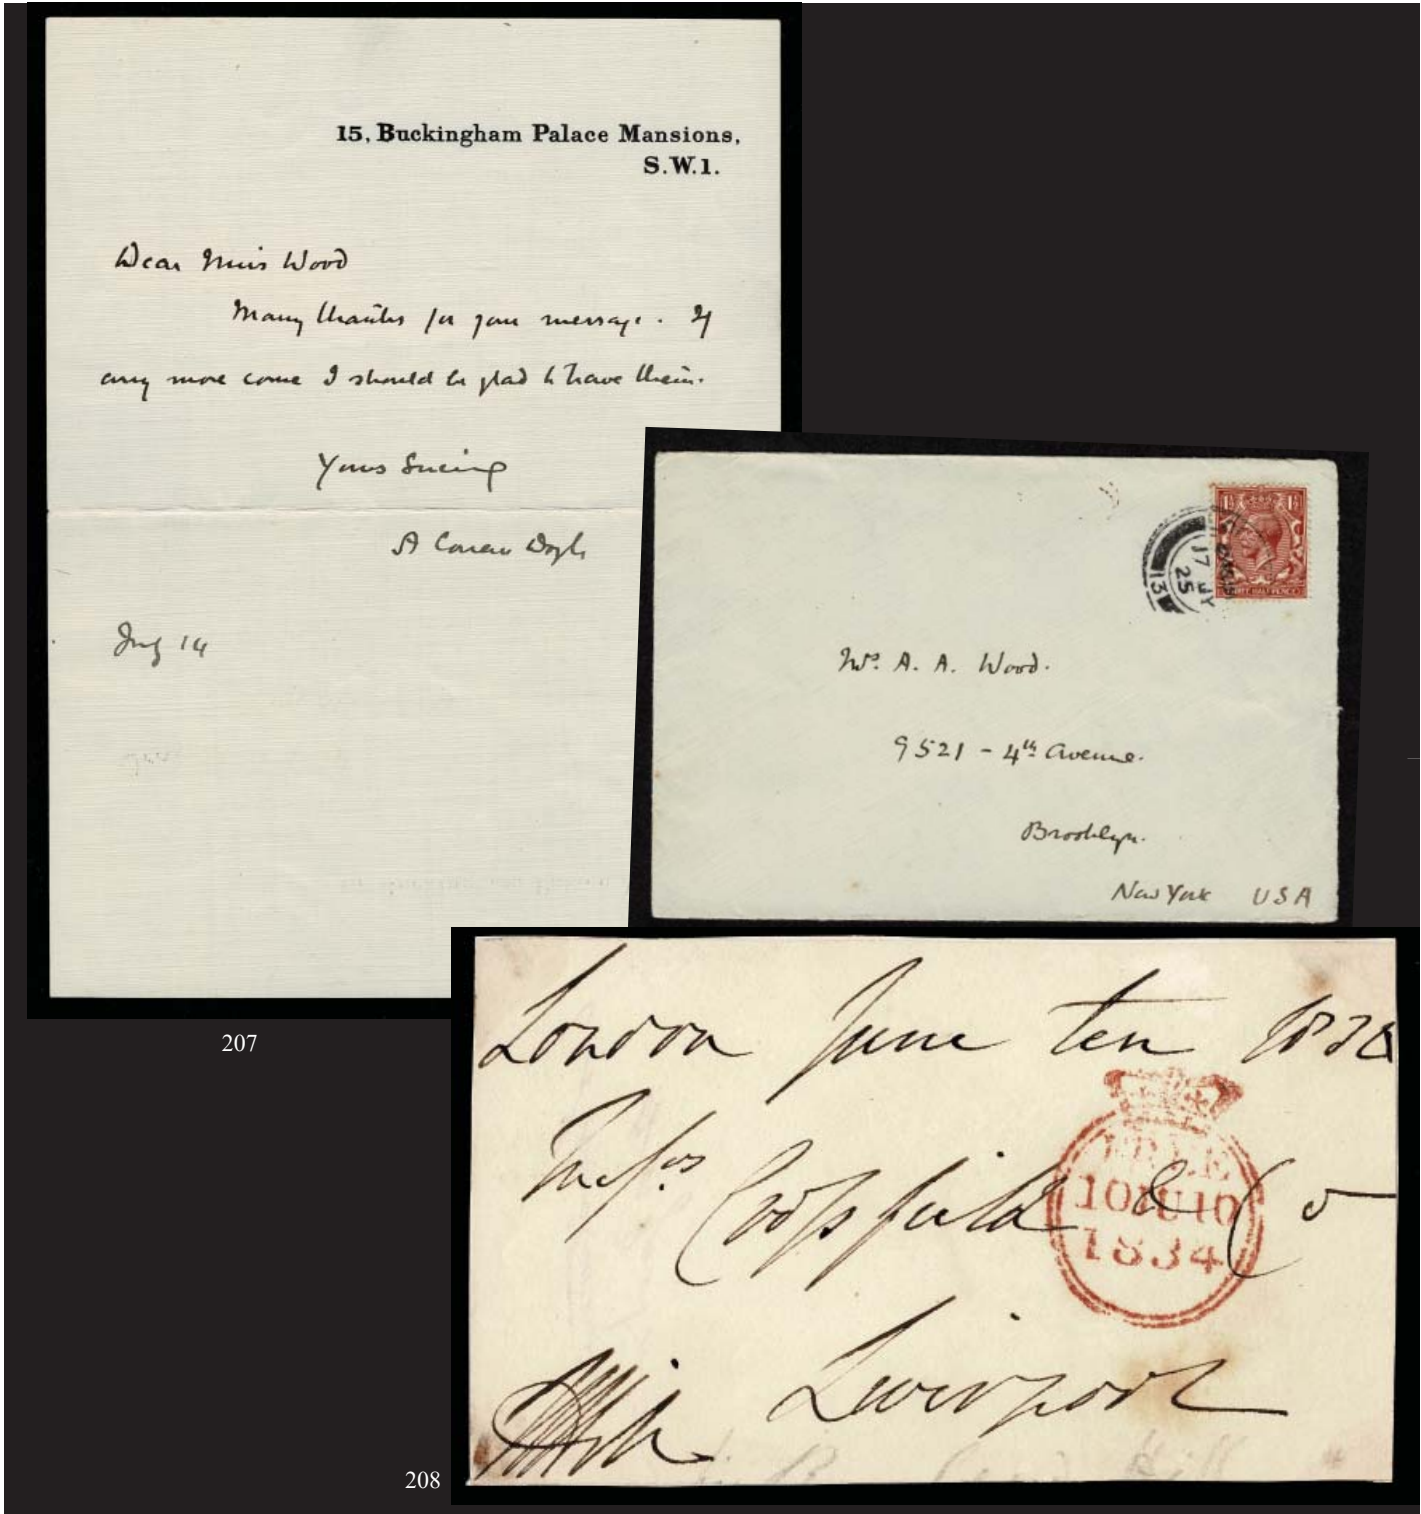 15, Buckingham Palace Mansions,
S.W.1.
Dear Miss Wood
Many thanks for your message. If
any more come I should be glad to have them.
Yours Sincerely
A Conan Doyle
July 14
207
1½ 1½
17 JY
25
13
A. A. Wood.
9521 - 4th Avenue.
Brooklyn.
New York USA
London June ten
FREE
10 JU 10
1834
& Co
Liverpool
208